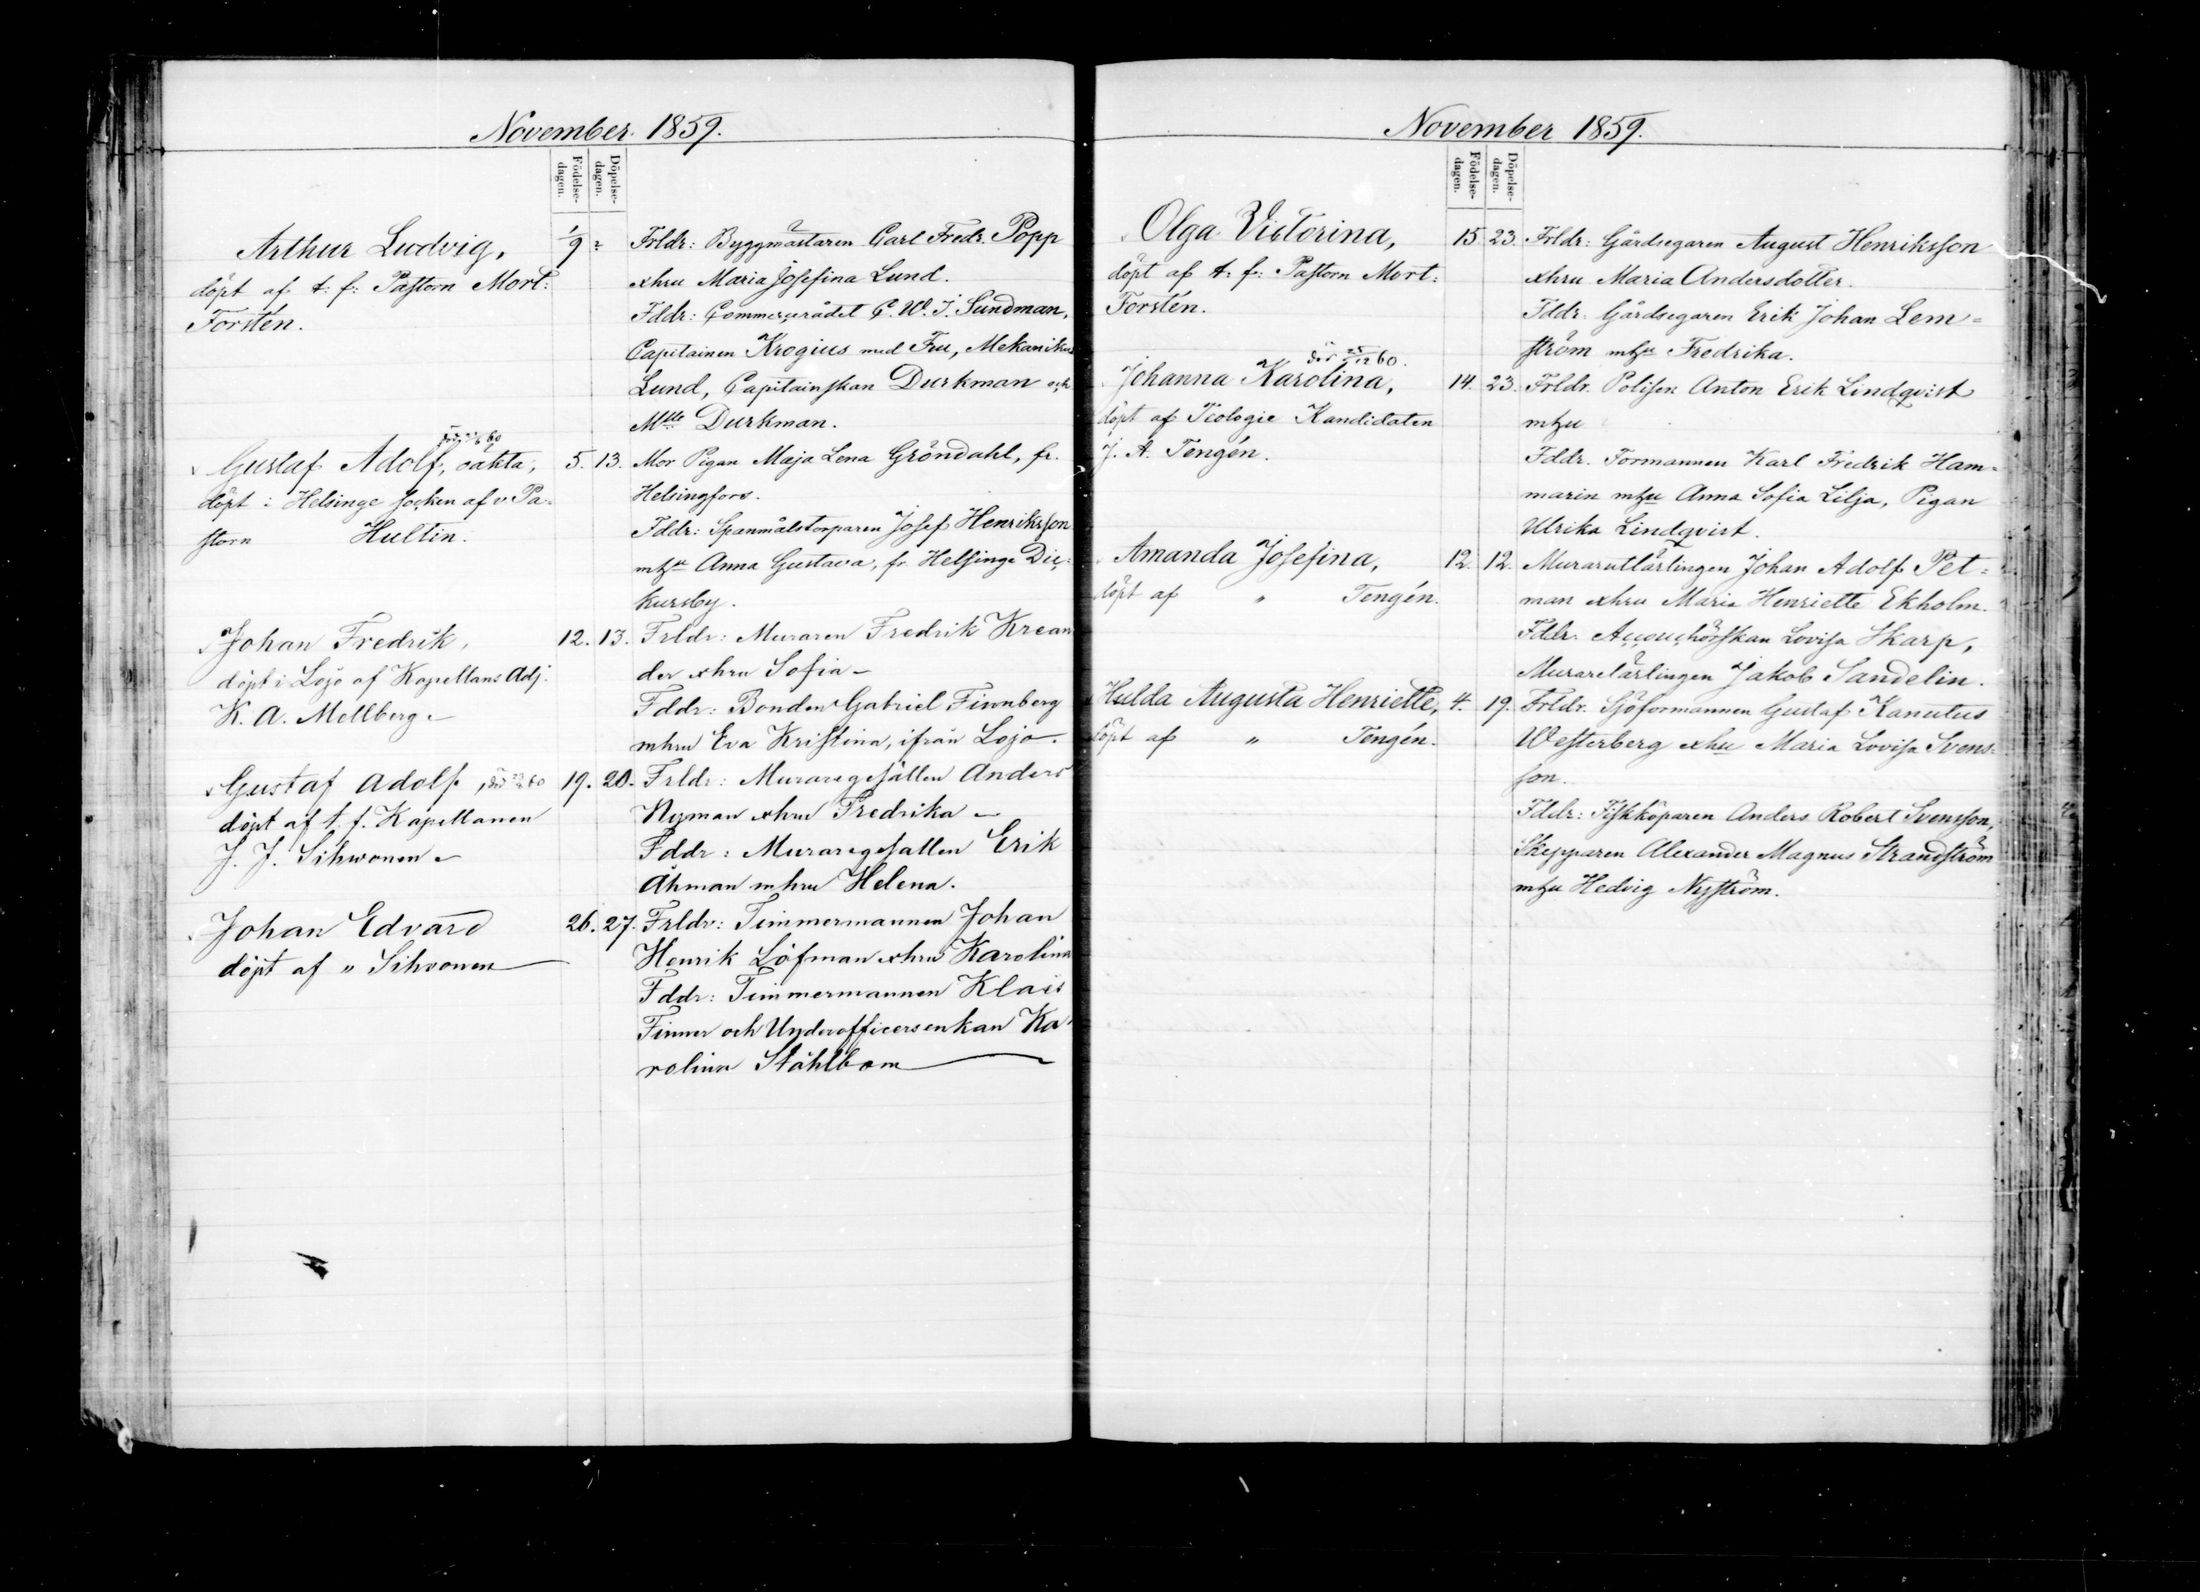 November 1859.
Födelse-
dagen.
Döpelse-
dagen.
Arthur Ludvig,
döpt af t: f: Pastorn Mort:
Forstén.
1/9
Frldr: Byggmästaren Carl Fredr. Popp
xhru Maria Josefina Lund.
Fddr: Commerserådet C. W. J. Sundman,
Capitainen Krogius med Fru, Mekanikus
Lund, Capitainskan Durkman och
Mlle Durkman.
60
Gustaf Adolf, oäkta,
döpt i Helsinge socken af v. Pa-
storn Hultin.
5. 13.
Mor Pigan Maja Lena Gröndahl, fr.
Helsingfors.
Fddr: Spanmålstorparen Josef Henriksson
mhu Anna Gustava, fr. Helsinge Dic-
kursby.
Johan Fredrik,
döpt i Lojo af Kapellans Adj.
K. A. Mellberg.
12. 13.
Frldr: Muraren Fredrik Krean
der xhru Sofia
Fddr: Bonden Gabriel Finnberg
mhru Eva Kristina, ifrån Lojo.
Gustaf Adolf, död 60
döpt af t. f. Kapellanen
J. J. Sihvonen
19. 20.
Frldr: Muraregesällen Anders
Nyman xhru Fredrika
Fddr: Muraregesällen Erik
Åhman mhru Helena.
Johan Edvard
döpt af " Sihvonen
26. 27.
Frldr: Timmermannen Johan
Henrik Löfman xhru Karolina
Fddr: Timmermannen Klais
Finner och Underofficersenkan Ka-
rolina Ståhlbom
November 1859.
Födelse-
dagen.
Döpelse-
dagen.
Olga Victorina,
döpt af t: f: Pastorn Mort:
Forstén.
15. 23.
Frldr: Gårdsegaren August Henriksson
xhru Maria Andersdotter.
Fddr: Gårdsegaren Erik Johan Lem-
ström mhu Fredrika.
död 25/12 60.
Johanna Karolina,
döpt af Teologie Kandidaten
J. A. Tengén.
14. 23.
Frldr. Polisen Anton Erik Lindqvist
mhu
Fddr. Formannen Karl Fredrik Ham-
marin mhu Anna Sofia Lilja, Pigan
Ulrika Lindqvist.
Amanda Josefina,
döpt af " Tengén.
12. 12.
Murarutlärlingen Johan Adolf Pet-
man xhru Maria Henriette Ekholm.
Fddr. Accouchörskan Lovisa Skarp,
Murarelärlingen Jakob Sandelin.
Hulda Augusta Henriette,
döpt af " Tengén.
4. 19.
Frldr. Sjöformannen Gustaf Kanutus
Westerberg xhu Maria Lovisa Svens-
son.
Fddr: Fiskköparen Anders Robert Svensson,
Skepparen Alexander Magnus Strandström
mhu Hedvig Nyström.